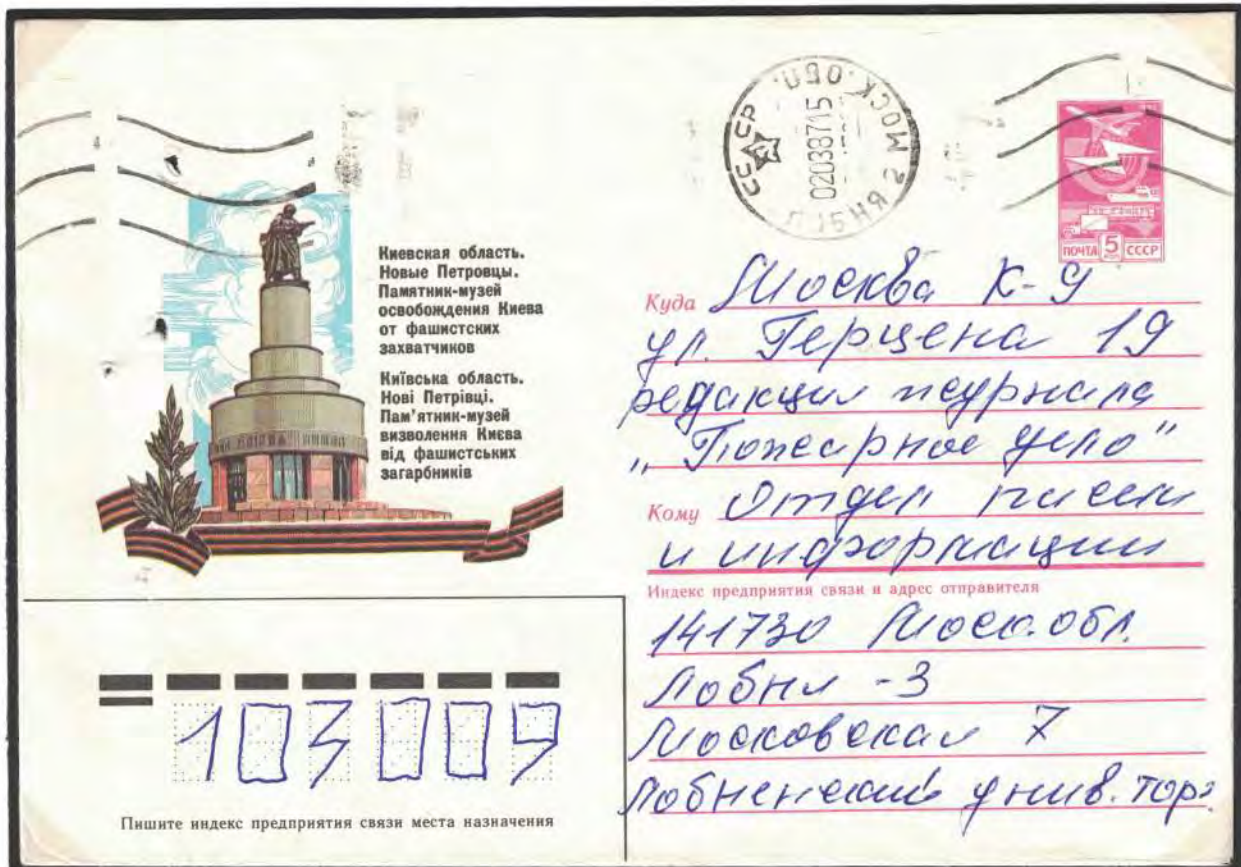 СССР МОСК. ОБЛ.
02038715
ЛОБНЯ 2
ПОЧТА 5 СССР
Киевская область.
Новые Петровцы.
Памятник-музей
освобождения Киева
от фашистских
захватчиков
Київська область.
Нові Петрівці.
Пам'ятник-музей
визволення Києва
від фашистських
загарбників
Куда Москва К-9
ул. Герцена 19
редакция журнала
"Пожарное дело"
Кому Отдел писем
и информации
Индекс предприятия связи и адрес отправителя
141730 Моск. обл.
Лобня -3
Московская 7
Лобненский унив. торг
103009
Пишите индекс предприятия связи места назначения